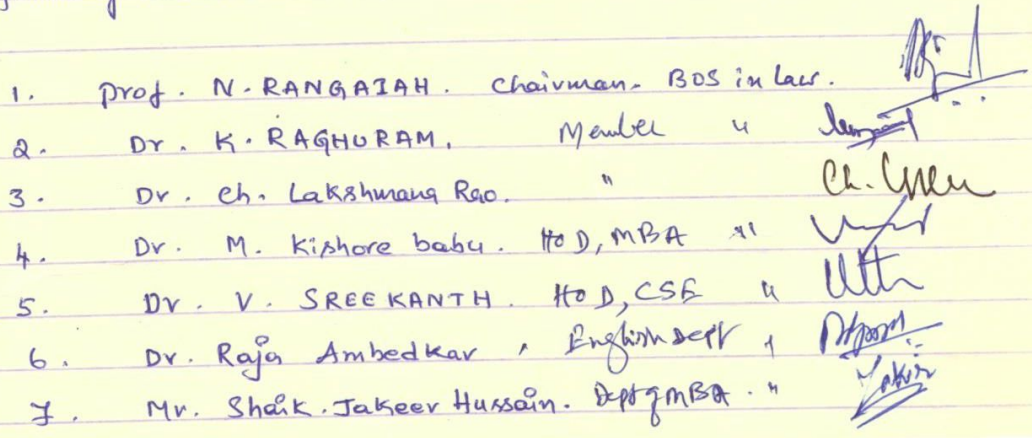 1. Prof. N. RANGAIAH. Chairman. BOS in Law.
2. Dr. K. RAGHURAM, Member "
3. Dr. Ch. Lakshmana Rao. "
4. Dr. M. Kishore babu. HoD, MBA "
5. Dr. V. SREEKANTH. HoD, CSE "
6. Dr. Raja Ambedkar, English Dept "
7. Mr. Shaik. Jakeer Hussain. Dept of MBA. "